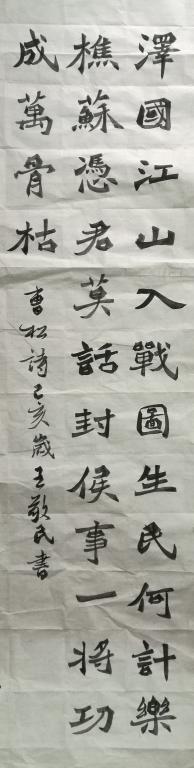 澤國江山入戰圖生民何計樂
樵蘇憑君莫話封侯事一將功
成萬骨枯
曹松詩己亥歲王敬民書